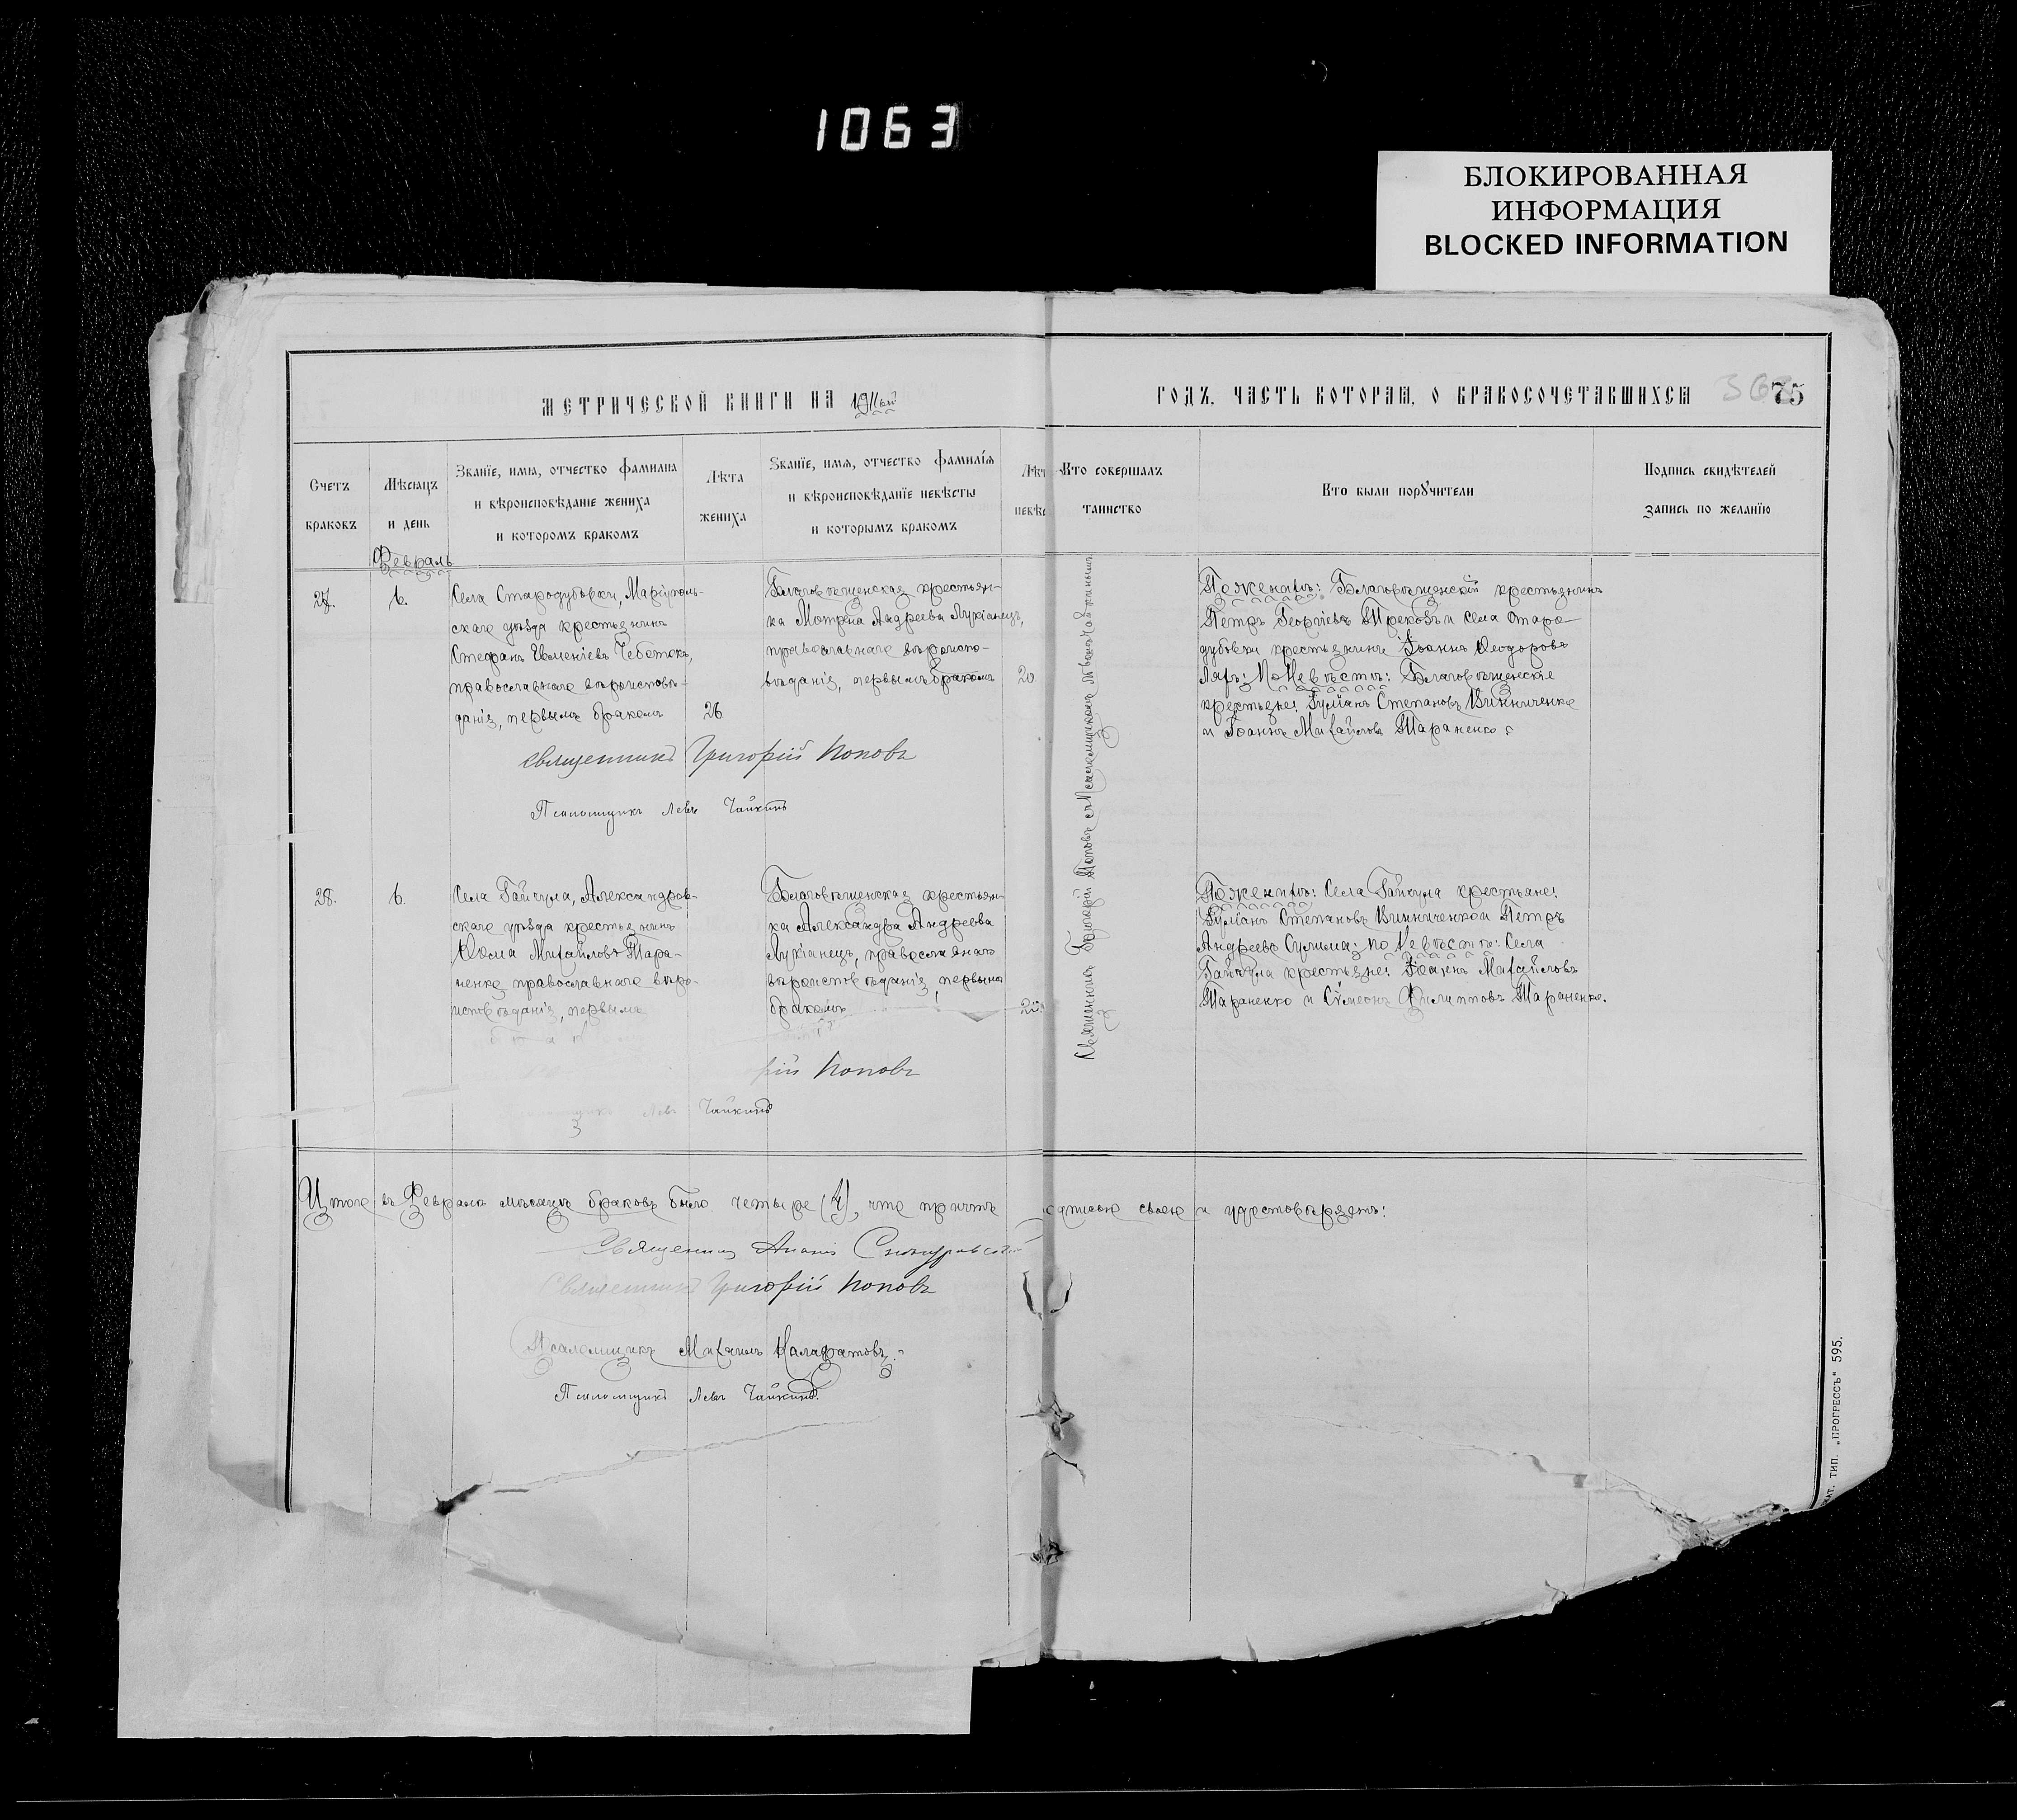 1063
БЛОКИРОВАННАЯ
ИНФОРМАЦИЯ
BLOCKED INFORMATION
МЕТРИЧЕСКОЙ КНИГИ НА 1911ый
ГОДЪ, ЧАСТЬ ВТОРАЯ, О БРАКОСОЧЕТАВШИХСЯ
75
Счетъ
браковъ
Мѣсяцъ
и день
Званіе, имя, отчество фамилия
и вѣроисповѣданіе жениха
и которомъ бракомъ
Лѣта
жениха
Званіе, имя, отчество фамилія
и вѣроисповѣданіе невѣсты
и которымъ бракомъ
Лѣт
невѣс
Кто совершалъ
таинство
Кто были поручители
Подпись свидѣтелей
запись по желанію
Февраль
27.
6.
Села Стародубовки, Маріуполь-
скаго уѣзда крестьянинъ
Стефанъ Чеботокъ,
православнаго вѣроисповѣ-
данія, первымъ бракомъ
26
Благовѣщенская крестьян-
ка Мотрона Андреева Лукіанецъ,
православнаго вѣроиспо-
вѣданія, первымъ бракомъ
20
Священникъ Григорій Поповъ съ Псаломщикомъ Львомъ Чайкинымъ
По женихѣ: Благовѣщенскій крестьянинъ
Петръ Георгіевъ и села Старо-
дубовки крестьянинъ Іоаннъ Ѳеодоровъ
По Невѣстѣ: Благовѣщенскіе
крестьяне: Іуліанъ Степановъ Винниченко
и Іоаннъ Михайловъ Тараненко
Священникъ Григорій Поповъ
Псаломщикъ Левъ Чайкинъ
28.
6.
Села Гайчула, Александров-
скаго уѣзда крестьянинъ
Михайловъ Тара-
ненко православнаго вѣро-
исповѣданія, первымъ
Благовѣщенская крестьян-
ка Александра Андреева
Лукіанецъ, православнаго
вѣроисповѣданія, первымъ
бракомъ
20.
По женихѣ: Села Гайчула крестьяне:
Іуліанъ Степановъ Винниченко и Петръ
Андреевъ Сулима; по Невѣстѣ: Села
Гайчула крестьяне: Іоаннъ Михайловъ
Тараненко и Сѵмеонъ Филипповъ Тараненко.
рій Поповъ
Левъ Чайкинъ
Итого въ Февралѣ мѣсяцѣ браковъ было четыре (4), что причтъ подписью своею и удостовѣряетъ:
Священникъ
Священникъ Григорій Поповъ
Псаломщикъ Михаилъ Калафатовъ.
Псаломщикъ Левъ Чайкинъ.
ТИП. „ПРОГРЕССЪ" 595.